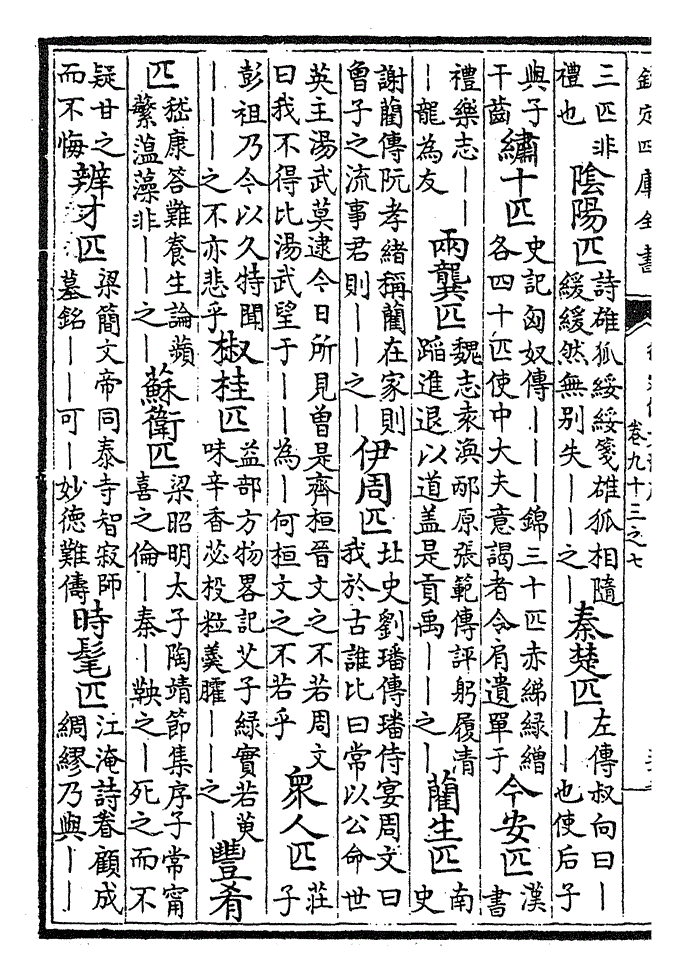 欽定四庫全書 卷九十三之七
三匹非禮也 陰陽匹 詩雄狐綏綏箋雄狐相隨緩緩然無别失——之— 秦楚匹 左傳叔向曰———也使后子
與子干齒 繡十匹 史記匈奴傳———錦三十匹赤綈緑繒各四十匹使中大夫意謁者令肩遺單于 今安匹 漢書
禮樂志———龍為友 兩龔匹 魏志袁渙邴原張範傳評躬履清蹈進退以道盖是貢禹——之— 藺生匹 南史
謝藺傳阮孝緒稱藺在家則曾子之流事君則——之— 伊周匹 北史劉璠傳璠侍宴周文曰我於古誰比曰常以公命世
英主湯武莫逮今日所見曽是齊桓晉文之不若周文曰我不得比湯武望于——為—何桓文之不若乎 衆人匹 莊子
彭祖乃今以久特聞———之不亦悲乎 椒桂匹 益部方物畧記艾子緑實若萸味辛香苾投粒羹臛——之— 豐肴
匹 嵇康答難養生論蘋蘩薀藻非——之— 蘇衛匹 梁昭明太子陶靖節集序子常甯喜之倫—秦—鞅之—死之而不
疑甘之而不悔 辨才匹 梁簡文帝同泰寺智寂師墓銘——可—妙德難儔 時髦匹 江淹詩眷顧成綢繆乃與——